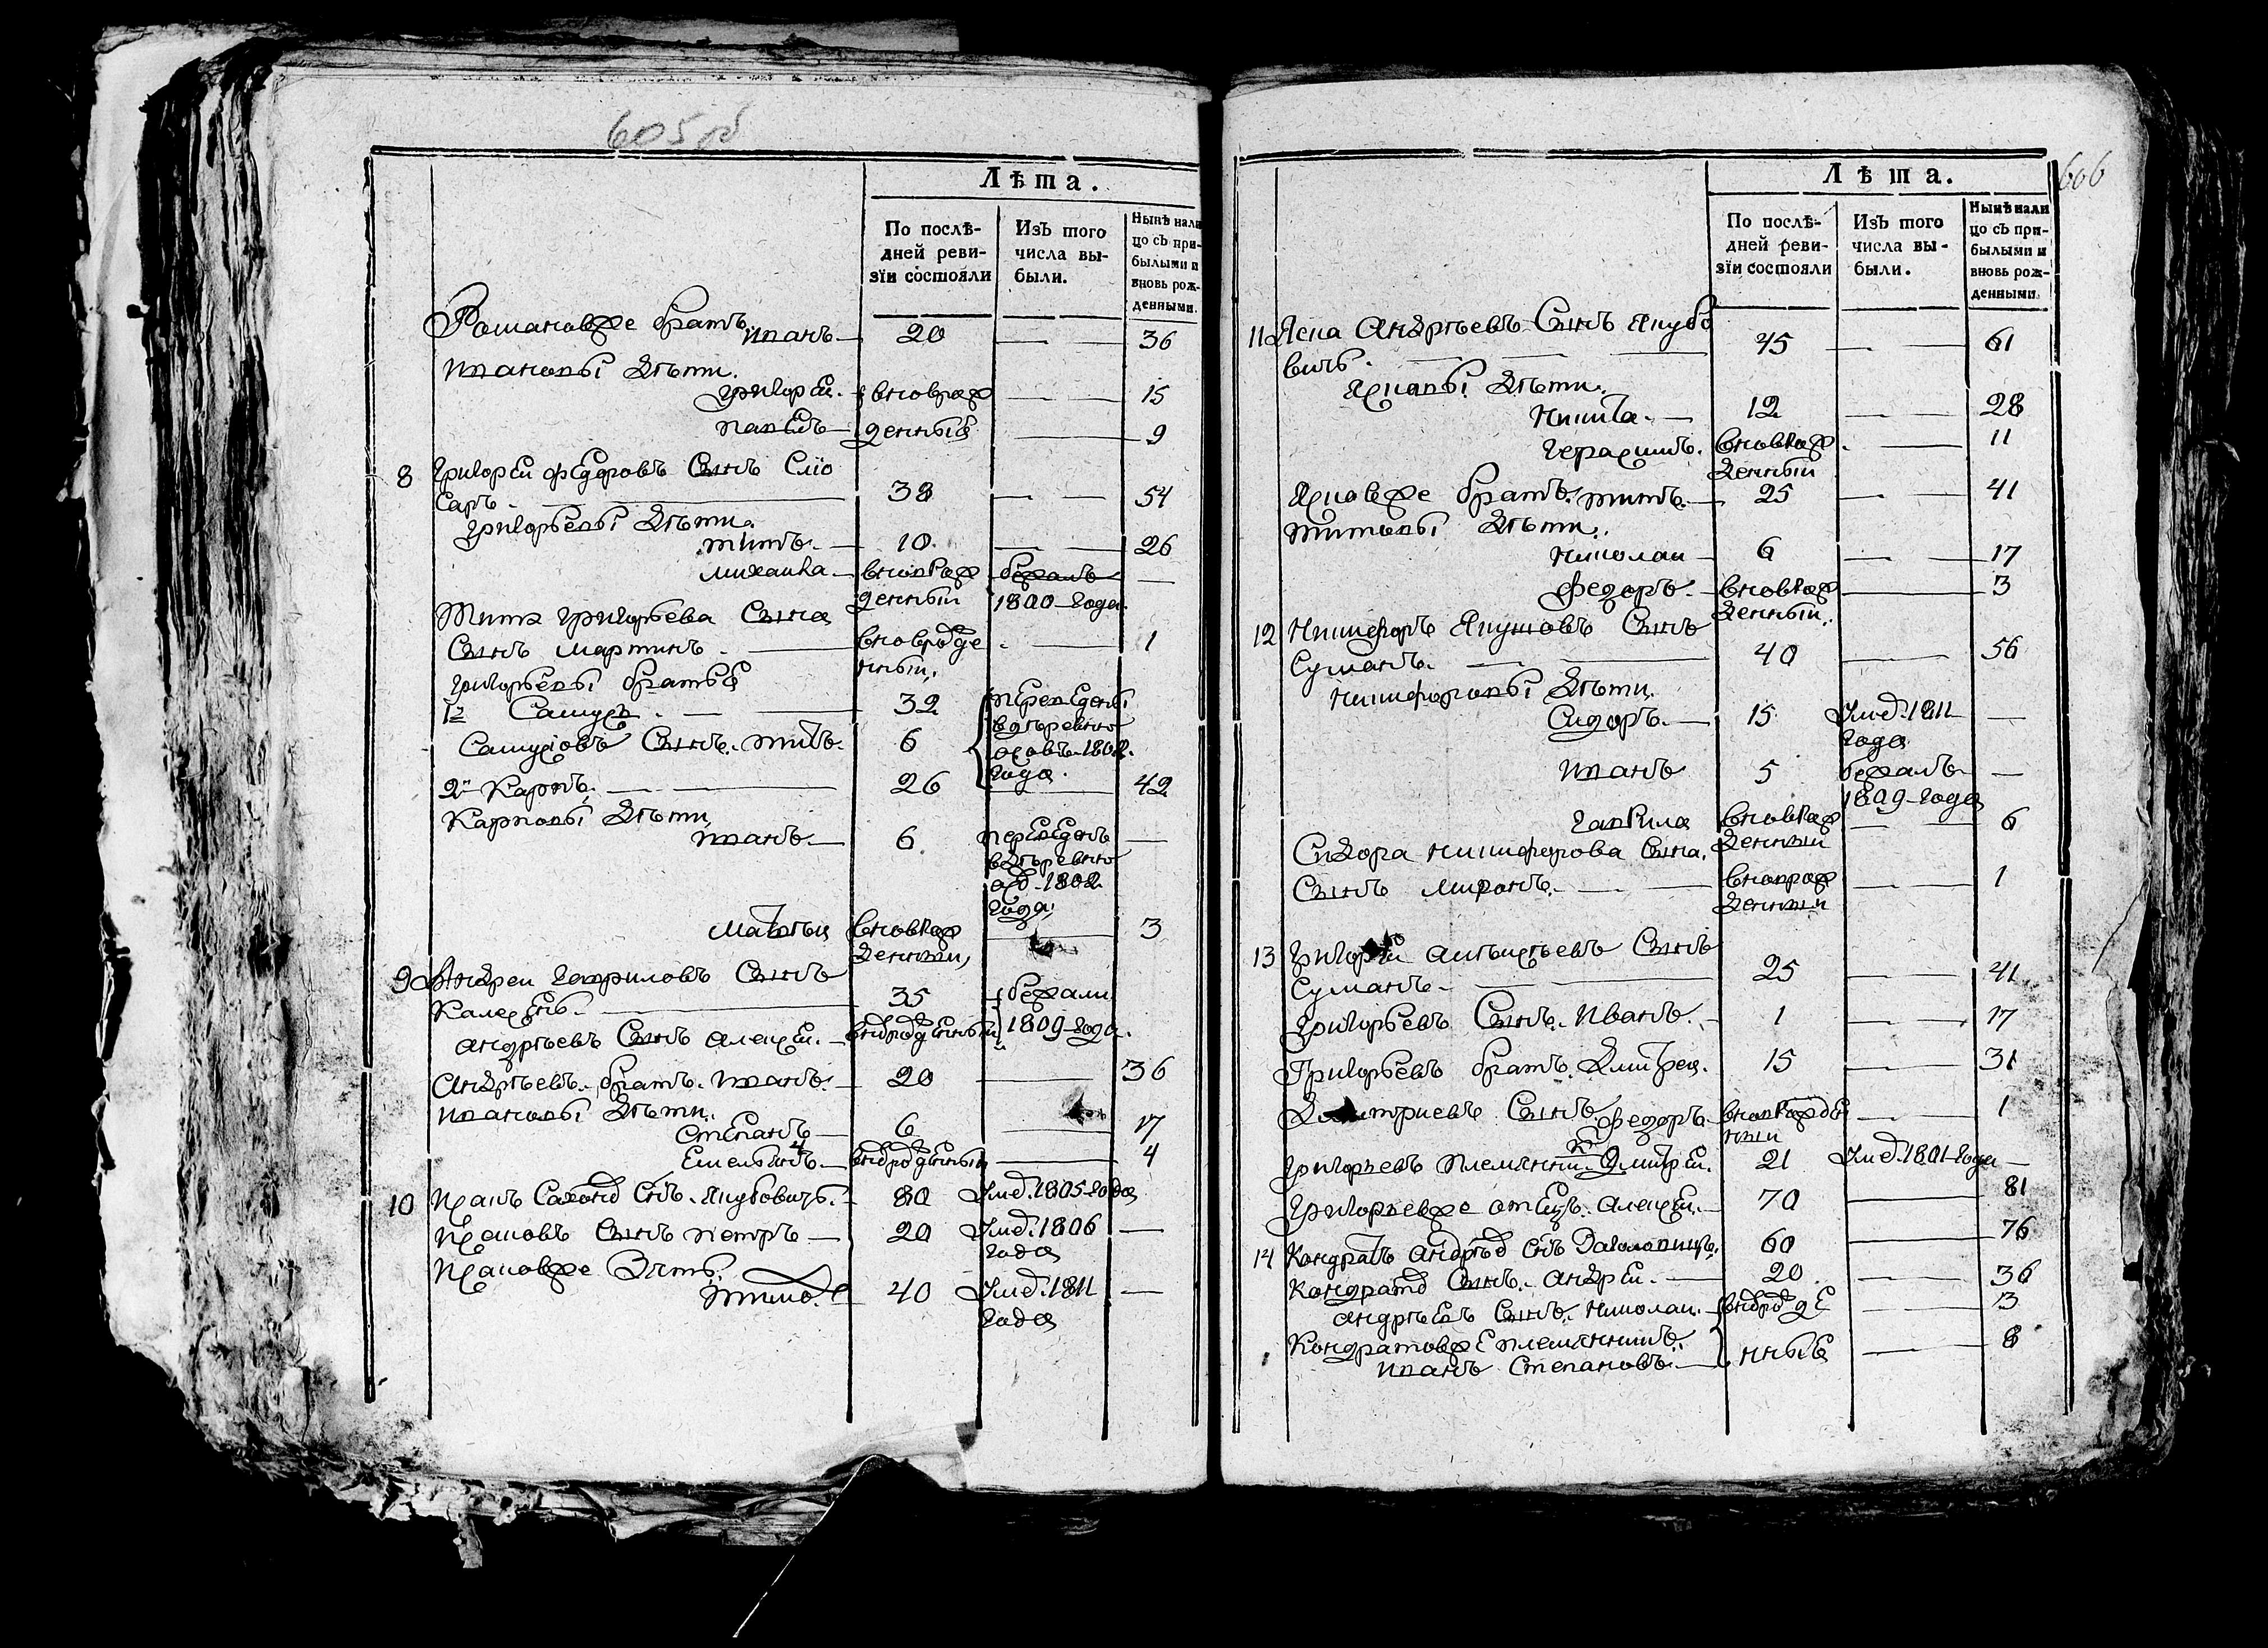 605 об
Лѣта.
По послѣ-
дней реви-
зїи состояли
Изъ того
числа вы-
были.
Нынѣ нали
цо съ при-
былыми и
вновь рож-
денными.
Романовже братъ
Иванъ — 20 — — 36
Ивановы дѣти.
Григорей. вноврож — — 15
Павелъ — денныя — 9
8 Григорей Федоровъ Сынъ Слю
саръ. — 38 — — 54
Григорьевы дѣти.
Титъ. — 10. — — 26
Михаила — вноврож бежалъ —
денный 1800 года.
Тита Григорьева Сына
Сынъ Мартинъ. — вновродже — 1
нный.
Григорьевы братья
1й — 32 переведены
в деревню
Сынъ. Титъ. 6 1802.
года.
2й Карпъ. — 26 — 42
Карповы дѣти
Иванъ. — 6. переведенъ —
в деревню
1802
года,
Матвѣй вноврож — 3
денный,
9 Андрей Гавриловъ Сынъ
— 35 бежали
Андрѣевъ Сынъ Алексей. — вноврожденный 1809 года.
Андрѣевъ. братъ. Иванъ. — 20 — 36
Ивановы дѣти.
Степанъ — 6 — 17
Емельянъ. — вноврожденный — 4
10 Якубовичъ. 80 Умер. 1805 года
Сынъ Петръ — 20 Умер. 1806 —
года
Зять.
40 Умер. 1811 —
года
606
Лѣта.
По послѣ-
дней реви-
зїи состояли
Изъ того
числа вы-
были.
Нынѣ нали
цо съ при-
былыми и
вновь рож-
денными.
11 Андрѣевъ Сынъ Якубо
вичъ. — — — 45 — — 61
дѣти.
Никита. — 12 — — 28
Герасимъ. вноврож. — 11
денный
братъ. Титъ. — 25 — — 41
Титовы дѣти.
Николай — 6 — — 17
Федоръ. — вноврож — 3
денный.
12 Никифоръ Сынъ
Суманъ. — — 40 — 56
Никифоровы дѣти.
Сидоръ. — 15 Умер. 1811 —
года
Иванъ 5 бежалъ —
1809 года
Гаврила вноврож — — 6
Сидора Никифорова Сына. денный
Сынъ Миронъ. — — вноврож — — 1
денный
13 Григорей Алексѣевъ Сынъ
Суманъ. — — 25 — — 41
Григорьевъ Сынъ. Иванъ. — 1 — — 17
Григорьевъ братъ. Дмитрей. 15 — — 31
Дмитриевъ Сынъ Федоръ. вноврожде — — 1
нный
Григорьевъ племянникъ Дмитрей. 21 Умер. 1801 года —
Григорьевже отецъ. Алексей. — 70 — 81
14 Кондратъ Андрѣев Сынъ 60 — 76
Кондратов Сынъ. Андрей. — 20. — — 36
Андрѣевъ Сынъ. Николай. — вноврожде — — 3
Кондратовже племянникъ.
Иванъ Степановъ. — нныя — — 8